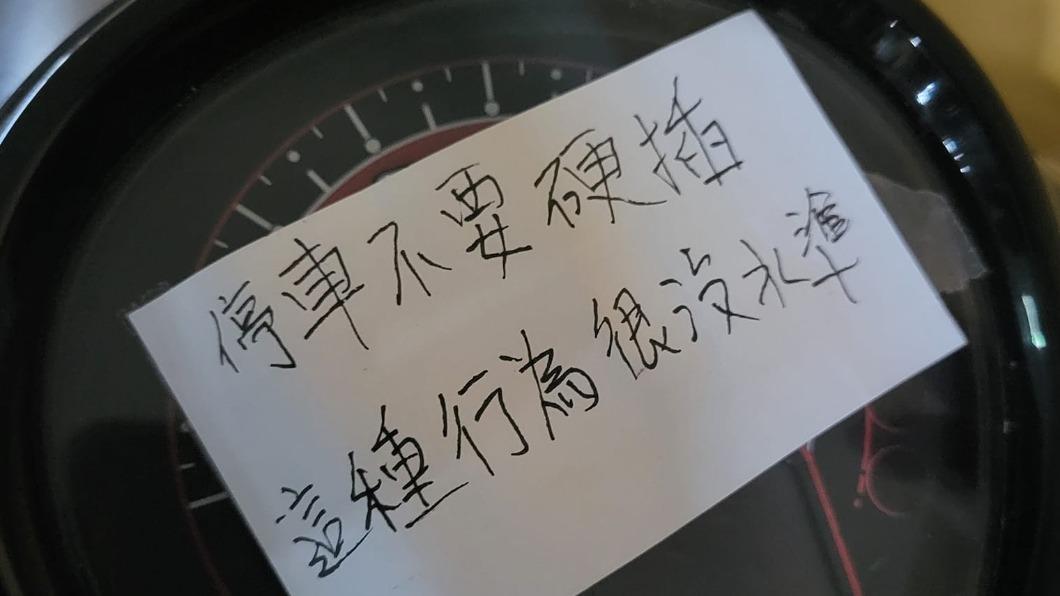 停車不要硬插
這種行為很沒水準